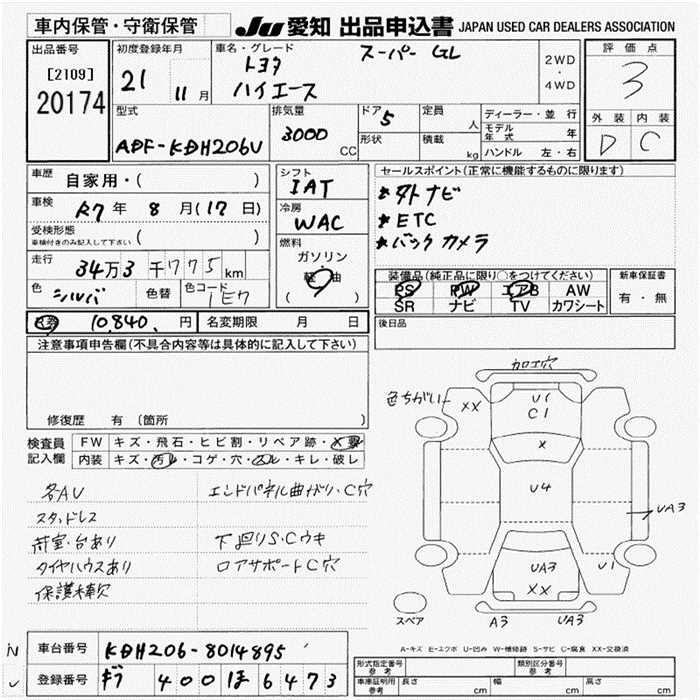 車内保管・守衛保管
JU 愛知 出品申込書 JAPAN USED CAR DEALERS ASSOCIATION
出品番号
[2109]
20174
初度登録年月
21 11月
車名・グレード
トヨタ スーパー GL
ハイエース
2WD
・
4WD
評価点
3
外装 内装
D C
型式
ADF-KDH206V
排気量
3000 CC
ドア 5
形状
定員 人
積載 kg
ディーラー・並行
モデル年式 年
ハンドル 左・右
車歴 自家用・( )
車検 R7年 8月(17日)
受検形態
車検付きのみ記入して下さい ( )
走行 34万3千775km
色 シルバ 色替 色コード 1E7
シフト
IAT
冷房
WAC
燃料
ガソリン
軽油
( )
セールスポイント(正常に機能するものに限ります)
*外ナビ
*ETC
*バックカメラ
装備品(純正品に限り○をつけてください)
PS PW エアB AW
SR ナビ TV カワシート
新車保証書
有・無
10,840、円 名変期限 月 日
後日品
注意事項申告欄(不具合内容等は具体的に記入して下さい)
修復歴 有 (箇所 )
検査員記入欄
FW キズ・飛石・ヒビ割・リペア跡・X要
内装 キズ・汚れ・コゲ・穴・スレ・キレ・破レ
各AU エンドパネル曲がり・C穴
スタッドレス
荷室・台あり 下廻りS・Cウキ
タイヤハウスあり ロアサポートC穴
保護棒欠
カロエ穴
色ちがい
XX
U1
C1
X
U4
UA3
UA3
XX
U1
A3 UA3
スペア
A-キズ E-エクボ U-凹み W-補修跡 S-サビ C-腐食 XX-交換済
車台番号 KDH206-8014895
登録番号 400 ほ 6473
形式指定番号 参考
類別区分番号 参考
車庫証明用 参考 長さ cm 幅 cm 高さ cm